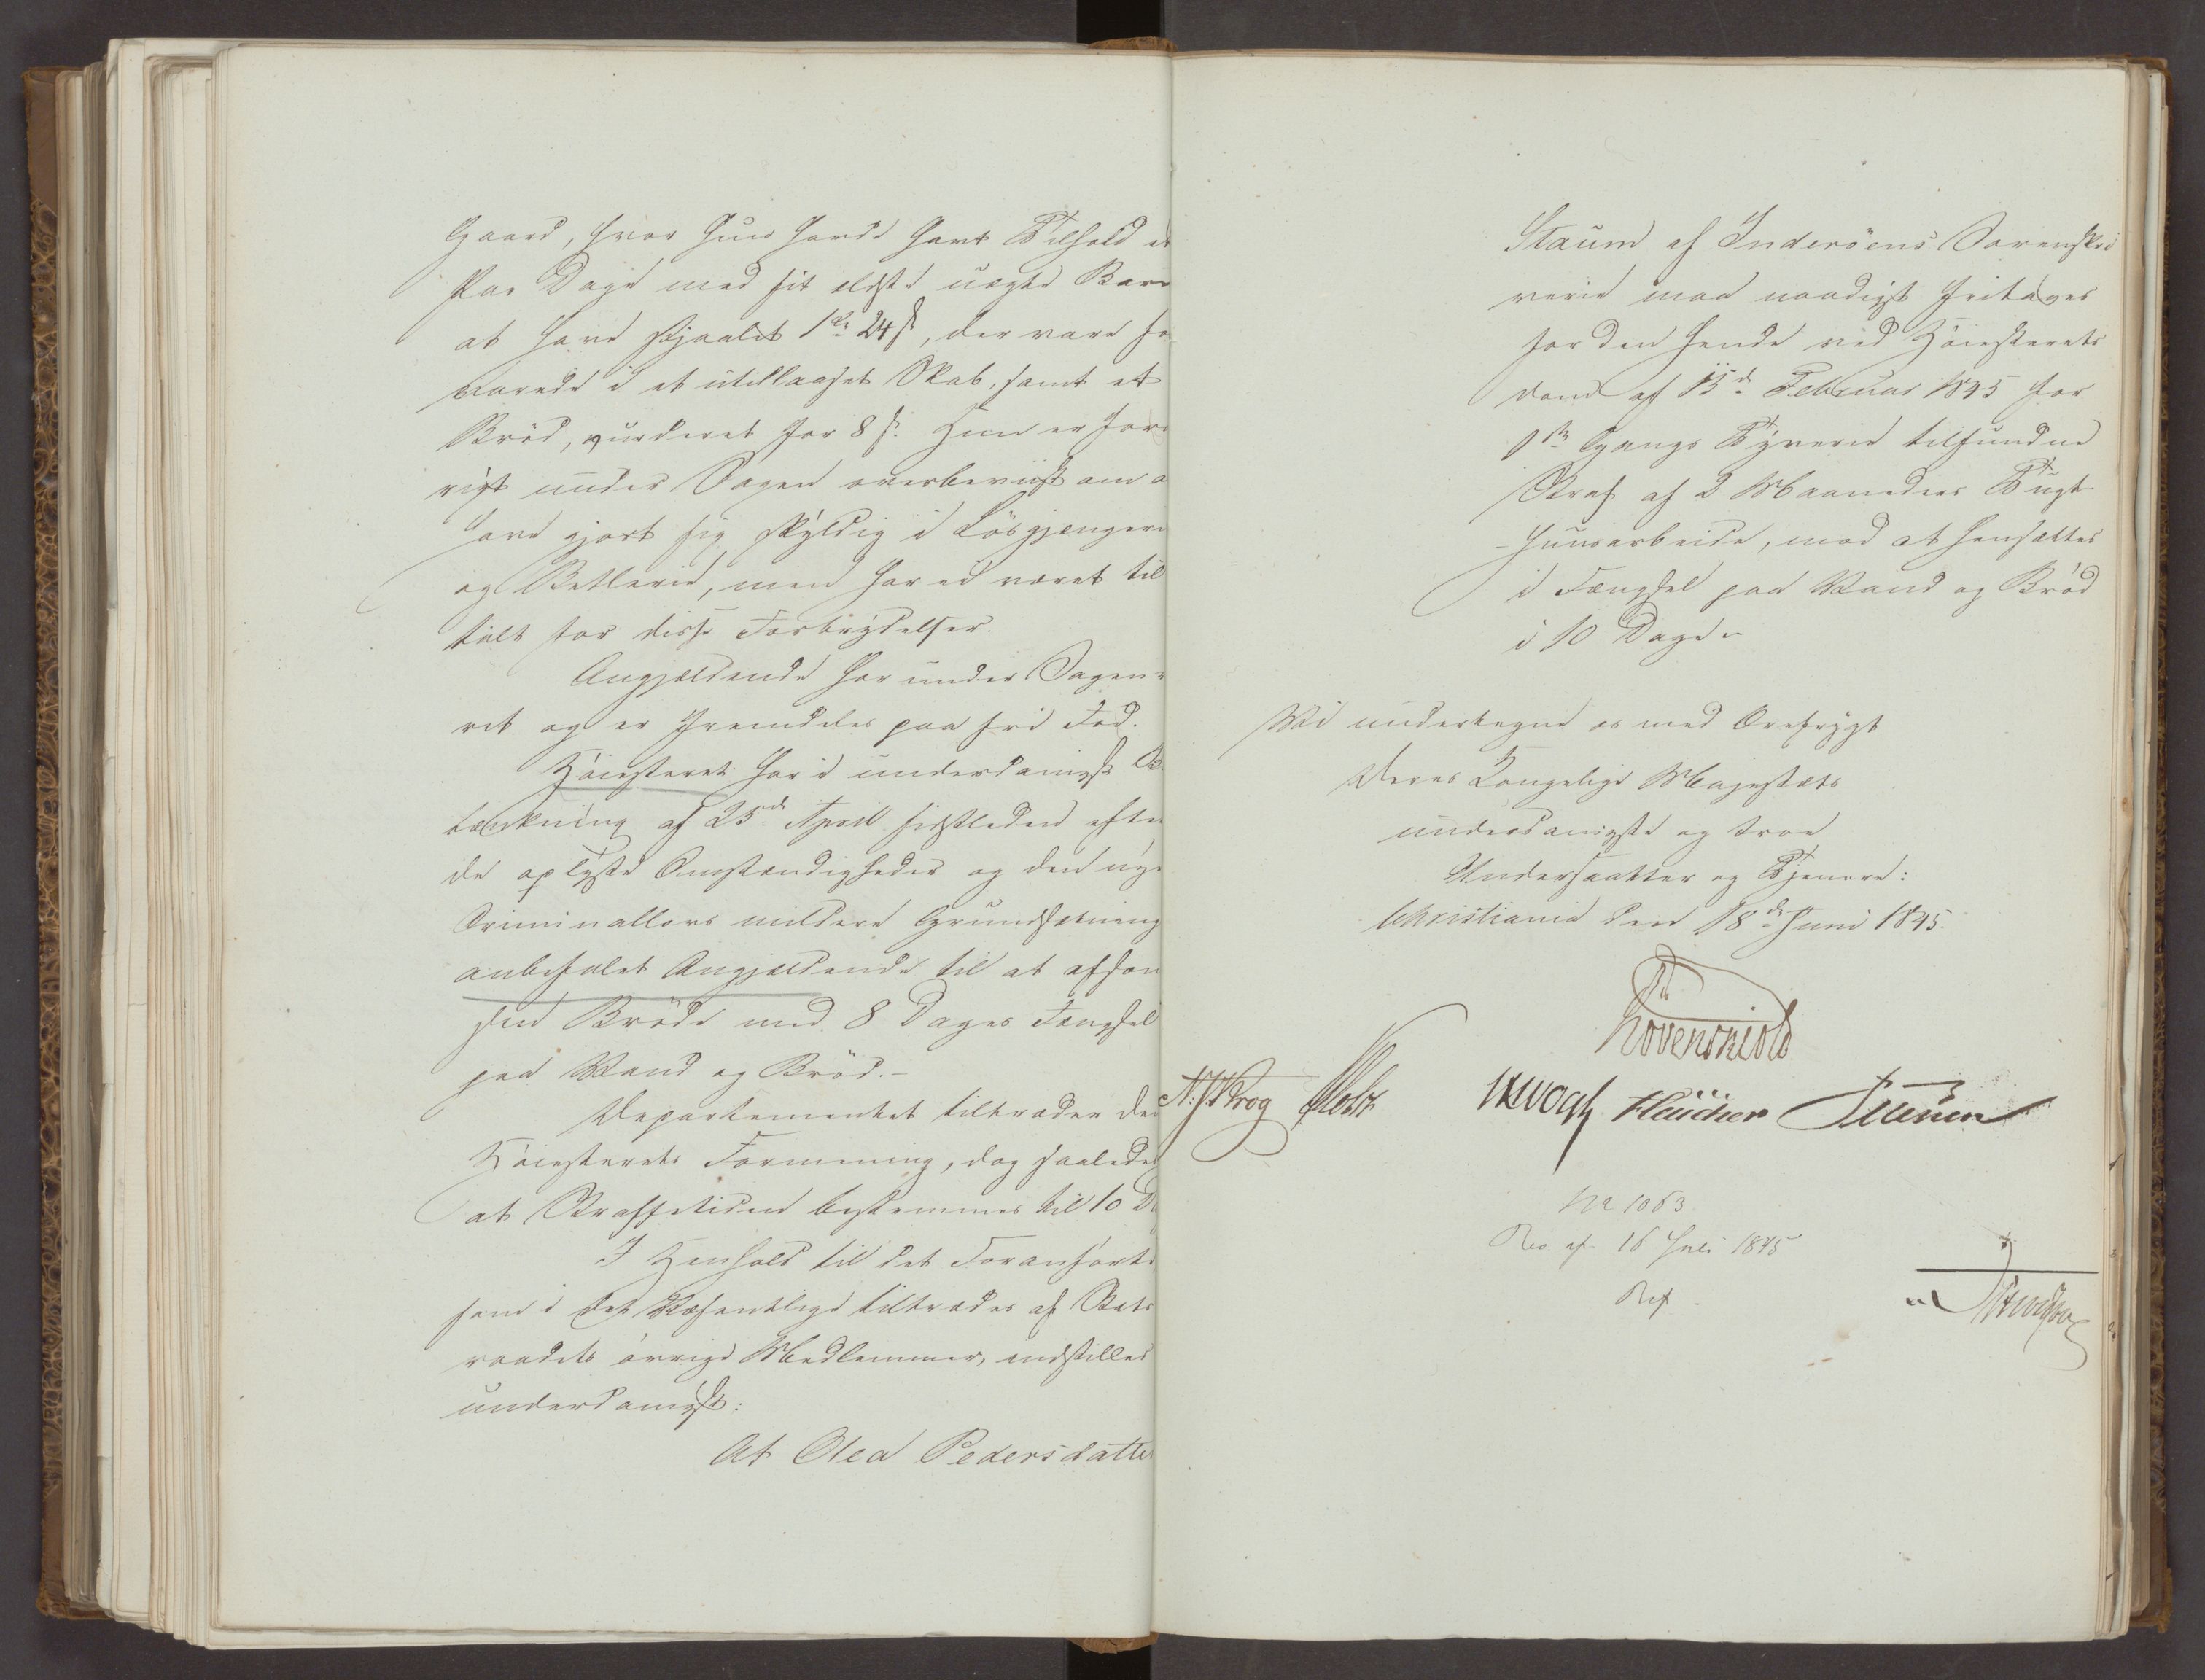 Gaard, hvor hun havde havt Tilhold et
Par Dage med sit ældste uægte Barn
at have stjaalet 1 Sp: 24 s, der vare for
varede i et utillaaset Skab, samt et
Bröd, vurderet for 8 s. Hun er forö
vrigt under Sagen overbeviist om a
have gjort sig skyldig i Lösgjængeri
og Betlerie, men har ei været til
talt for disse Forbrydelser.
Angjældende har under Sagen
vet og er fremdeles paa fri Fod.
Höiesteret har i underdanigst B
tænkning af 25de April sidstleden efter
de oplyste Omstændigheder og den nye
Criminallovs mildere Grundsætning
anbefalet Angjældende til at afson
sin Bröde med 8 Dages Fængsel
paa Vand og Bröd.-
Departementet tiltræder den
Höiesterets Formening, dog saaledes
at Straffetiden bestemmes til 10 D
I Henhold til det Foranförte
som i det Væsentlige tiltrædes af Stats
raadets övrige Medlemmer, indstilles
underdanigst:
At Olea Pedersdatter
Staum af Inderöens Sorenskri
verie maa naadigst fritages
for den hende ved Höiesterets
dom af 13de Februar 1845 for
1ste Gangs Tyverie tilfundne
Straf af 2 Maaneders Tugt-
-huusarbeide, mod at hensættes
i Fængsel paa Vand og Bröd
i 10 Dage.
Vi undertegne os med Ærefrygt
Deres Kongelige Majestæts
underdanigste og troe
Undersaatter og Tjenere:
Christiania den 18de Juni 1845.
Lövenskiold
N: J. Krog Motz Vogt
No 1063
Res af 16 Juli 1845
Ref.